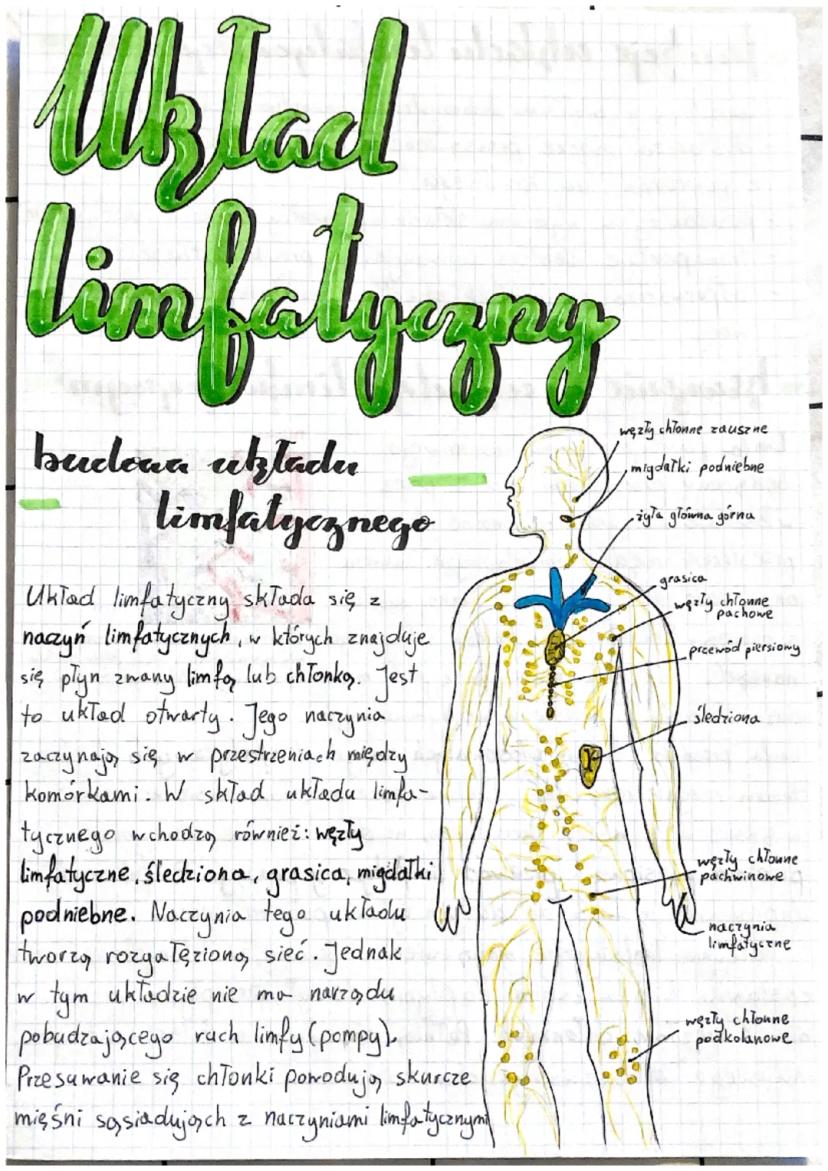 Układ
limfatyczny
budowa układu
limfatycznego
Układ limfatyczny składa się z
naczyń limfatycznych, w których znajduje
się płyn zwany limfą lub chłonką. Jest
to układ otwarty. Jego naczynia
zaczynają się w przestrzeniach między
komórkami. W skład układu limfa-
tycznego wchodzą również: węzły
limfatyczne, śledziona, grasica, migdałki
podniebne. Naczynia tego układu
tworzą rozgałęzioną sieć. Jednak
w tym układzie nie ma narządu
pobudzającego ruch limfy (pompy).
Przesuwanie się chłonki powodują skurcze
mięśni sąsiadujących z naczyniami limfatycznymi
węzły chłonne zauszne
migdałki podniebne
żyła główna górna
grasica
węzły chłonne
pachowe
przewód piersiowy
śledziona
węzły chłonne
pachwinowe
naczynia
limfatyczne
węzły chłonne
podkolanowe